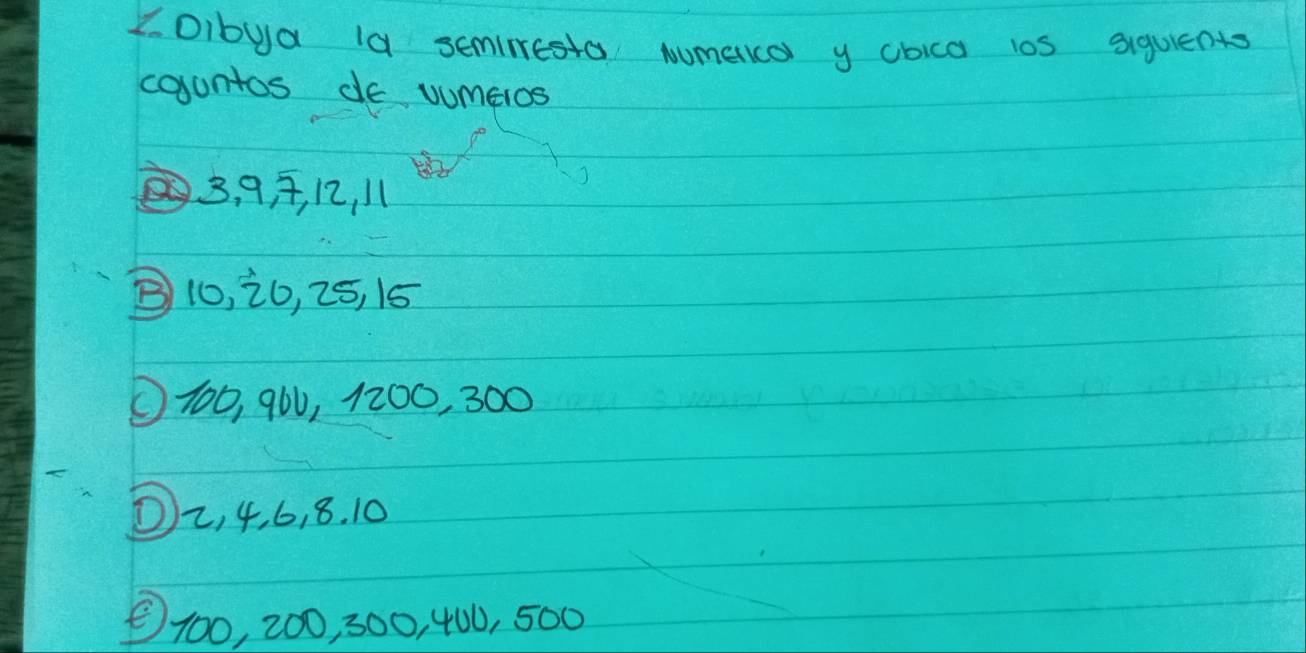 1. Dibuja la semirresta Numerica y Ubica los siguients
cojuntos de Numeros
a) 3, 9, 7, 12, 11
B) 10, 20, 25, 15
C) 100, 900, 1200, 300
D) 2, 4, 6, 8. 10
E) 100, 200, 300, 400, 500